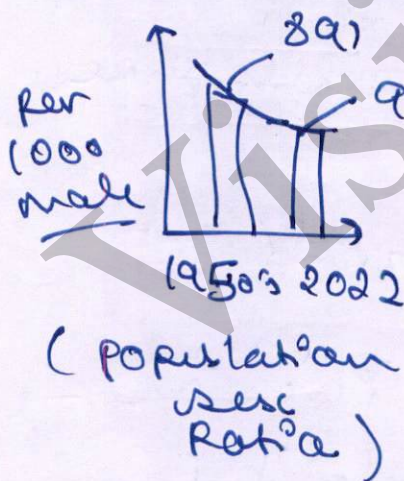 891
9
Per
1000
male
1950's 2022
( Population
sex
Ratio )
Visi